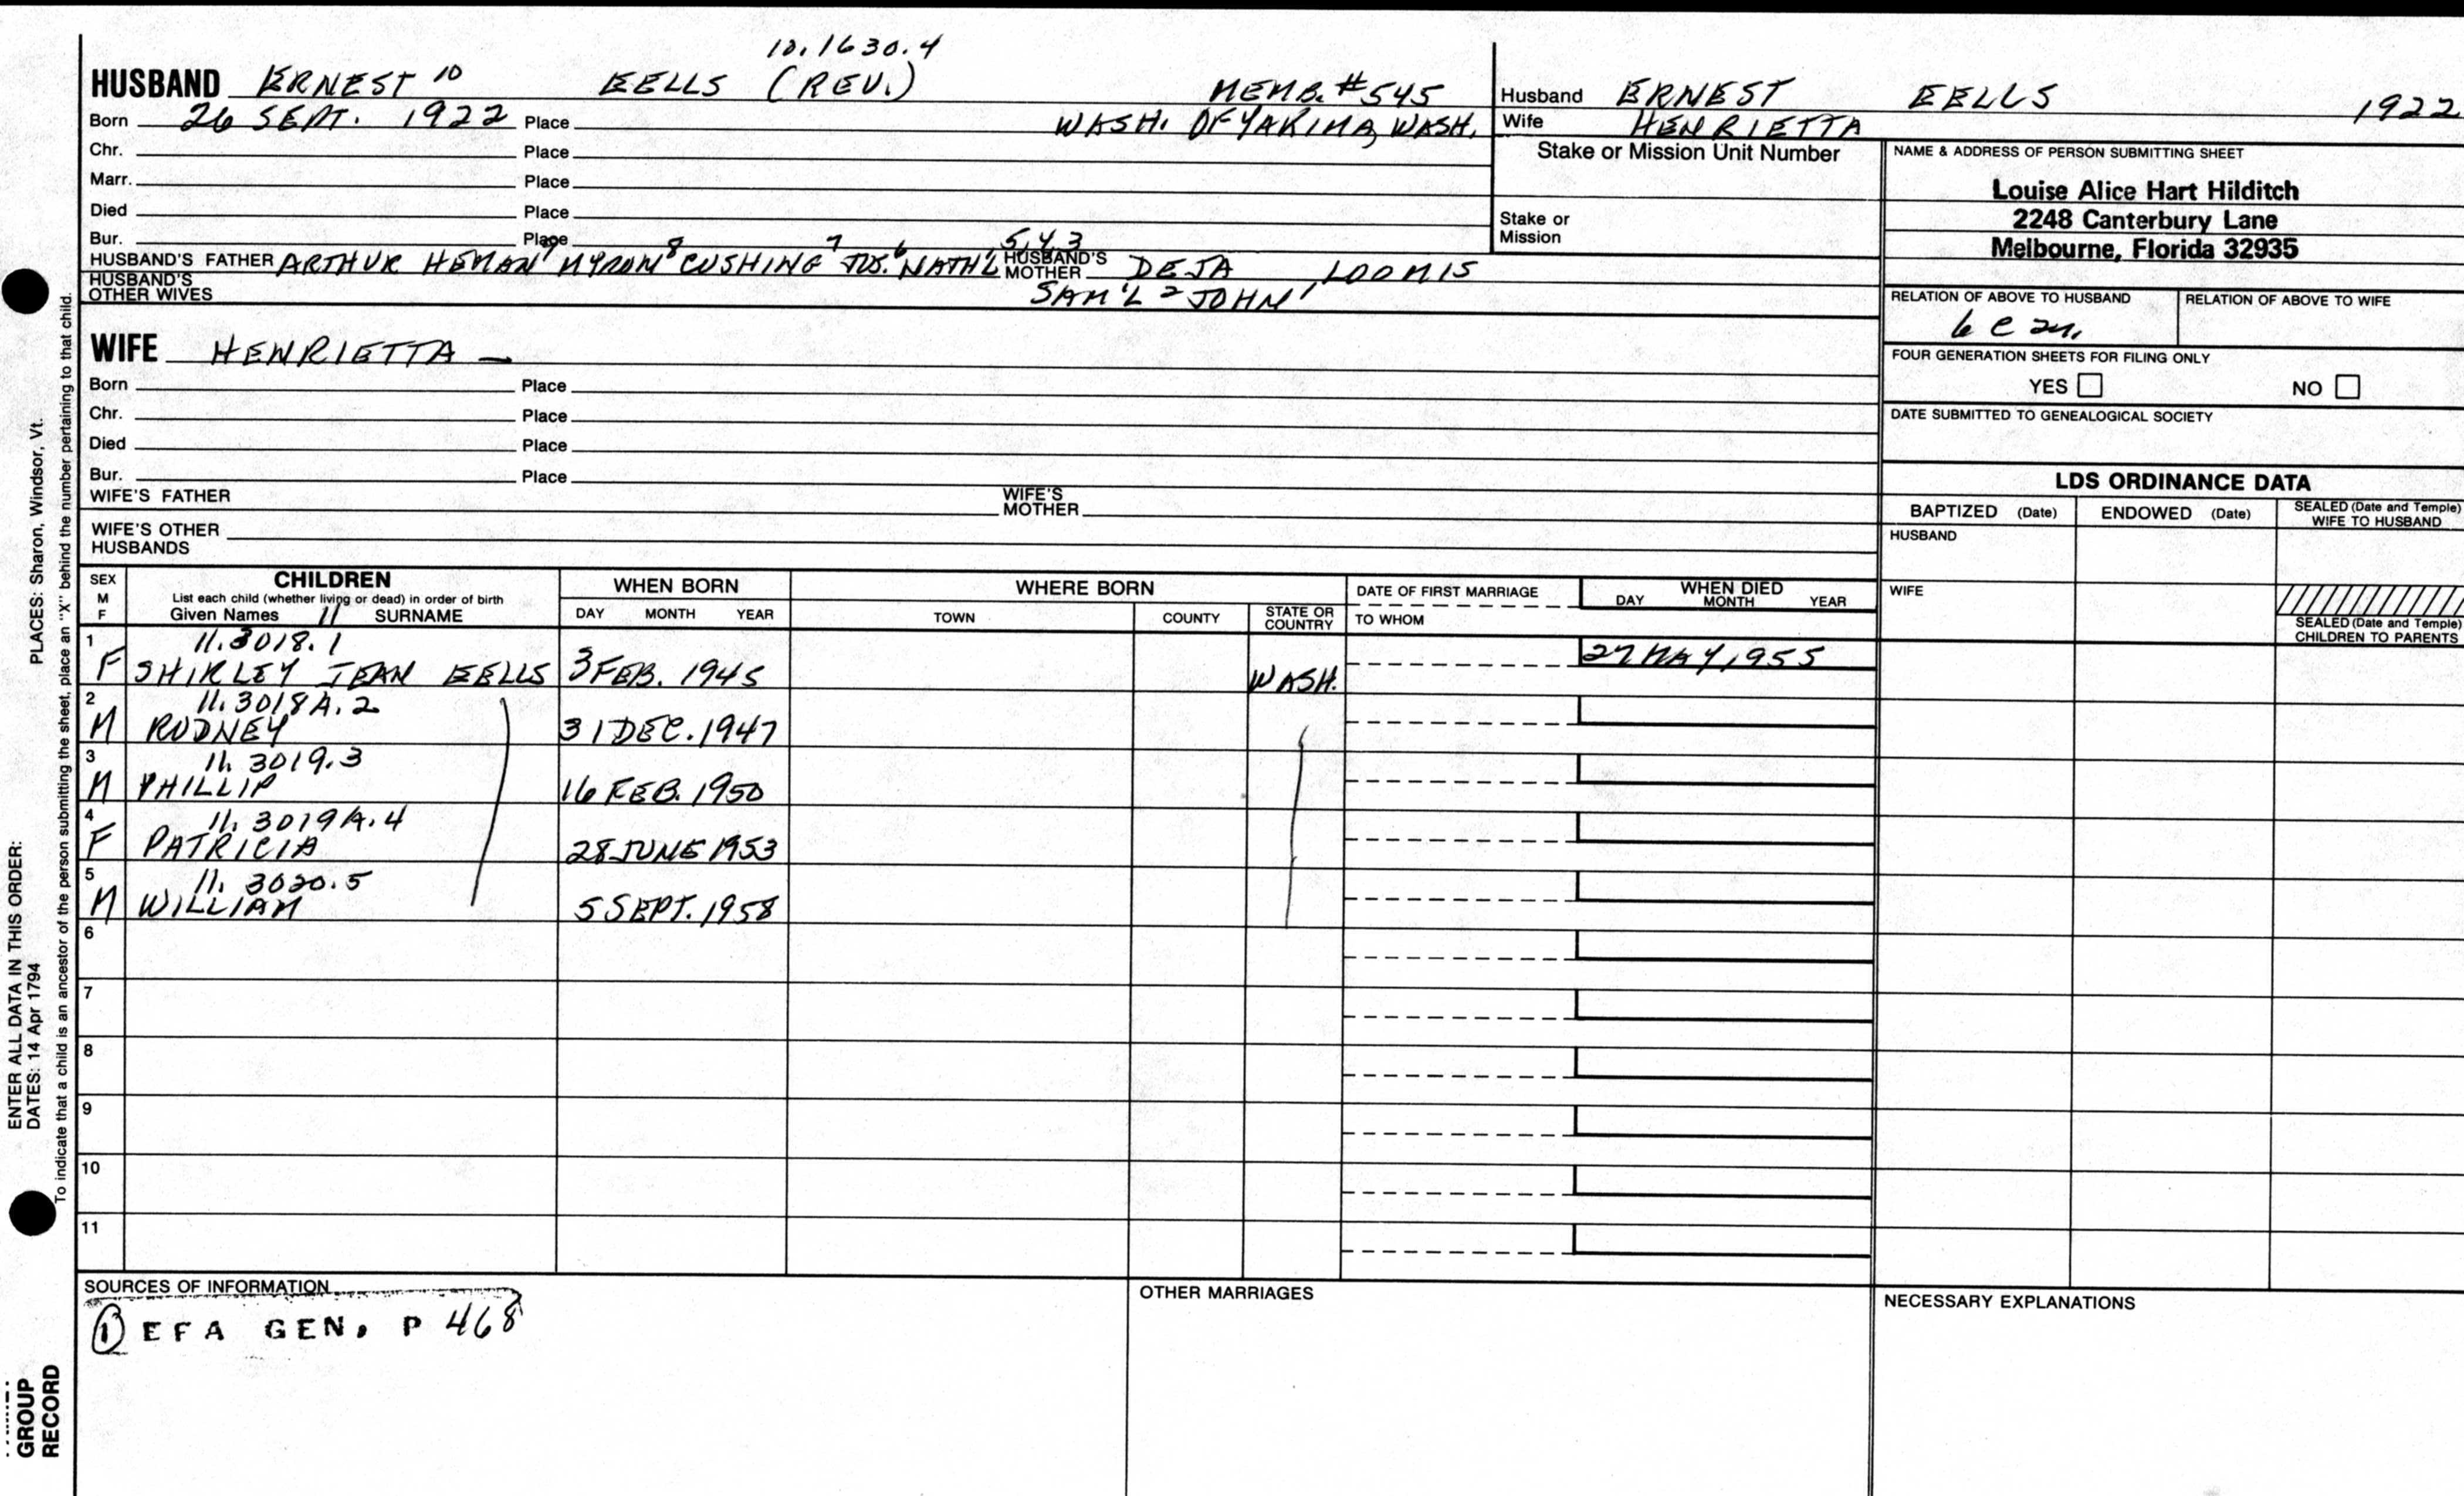 10.1630.4
HUSBAND ERNEST 10 EELLS (REV.) MEMB. #545
Born 26 SEPT. 1922 Place WASH. OF YAKIMA, WASH.
Chr. Place
Marr. Place
Died Place
Bur. Place
HUSBAND'S FATHER ARTHUR HEMAN 9 MYRON 8 CUSHING 7 JOS. 6 NATH'L 5,4,3 HUSBAND'S MOTHER DEJA LOOMIS
HUSBAND'S OTHER WIVES SAM'L 2 JOHN 1
WIFE HENRIETTA —
Born Place
Chr. Place
Died Place
Bur. Place
WIFE'S FATHER WIFE'S MOTHER
WIFE'S OTHER HUSBANDS
Husband ERNEST EELLS 1922
Wife HENRIETTA
Stake or Mission Unit Number
Stake or Mission
NAME & ADDRESS OF PERSON SUBMITTING SHEET
Louise Alice Hart Hilditch
2248 Canterbury Lane
Melbourne, Florida 32935
RELATION OF ABOVE TO HUSBAND RELATION OF ABOVE TO WIFE
FOUR GENERATION SHEETS FOR FILING ONLY
YES NO
DATE SUBMITTED TO GENEALOGICAL SOCIETY
LDS ORDINANCE DATA
BAPTIZED (Date) ENDOWED (Date) SEALED (Date and Temple) WIFE TO HUSBAND
HUSBAND
WIFE
SEALED (Date and Temple) CHILDREN TO PARENTS
SEX M F
CHILDREN
List each child (whether living or dead) in order of birth
Given Names 11 SURNAME
WHEN BORN
DAY MONTH YEAR
WHERE BORN
TOWN COUNTY STATE OR COUNTRY
DATE OF FIRST MARRIAGE
TO WHOM
WHEN DIED
DAY MONTH YEAR
1 11.3018.1
F SHIRLEY JEAN EELLS 3 FEB. 1945 WASH. 27 MAY 1955
2 11.3018A.2
M RODNEY 31 DEC. 1947
3 11.3019.3
M PHILLIP 16 FEB. 1950
4 11.3019A.4
F PATRICIA 28 JUNE 1953
5 11.3020.5
M WILLIAM 5 SEPT. 1958
6
7
8
9
10
11
SOURCES OF INFORMATION
① EFA GEN. P 468
OTHER MARRIAGES
NECESSARY EXPLANATIONS
ENTER ALL DATA IN THIS ORDER:
DATES: 14 Apr 1794 PLACES: Sharon, Windsor, Vt.
To indicate that a child is an ancestor of the person submitting the sheet, place an "X" behind the number pertaining to that child.
GROUP
RECORD